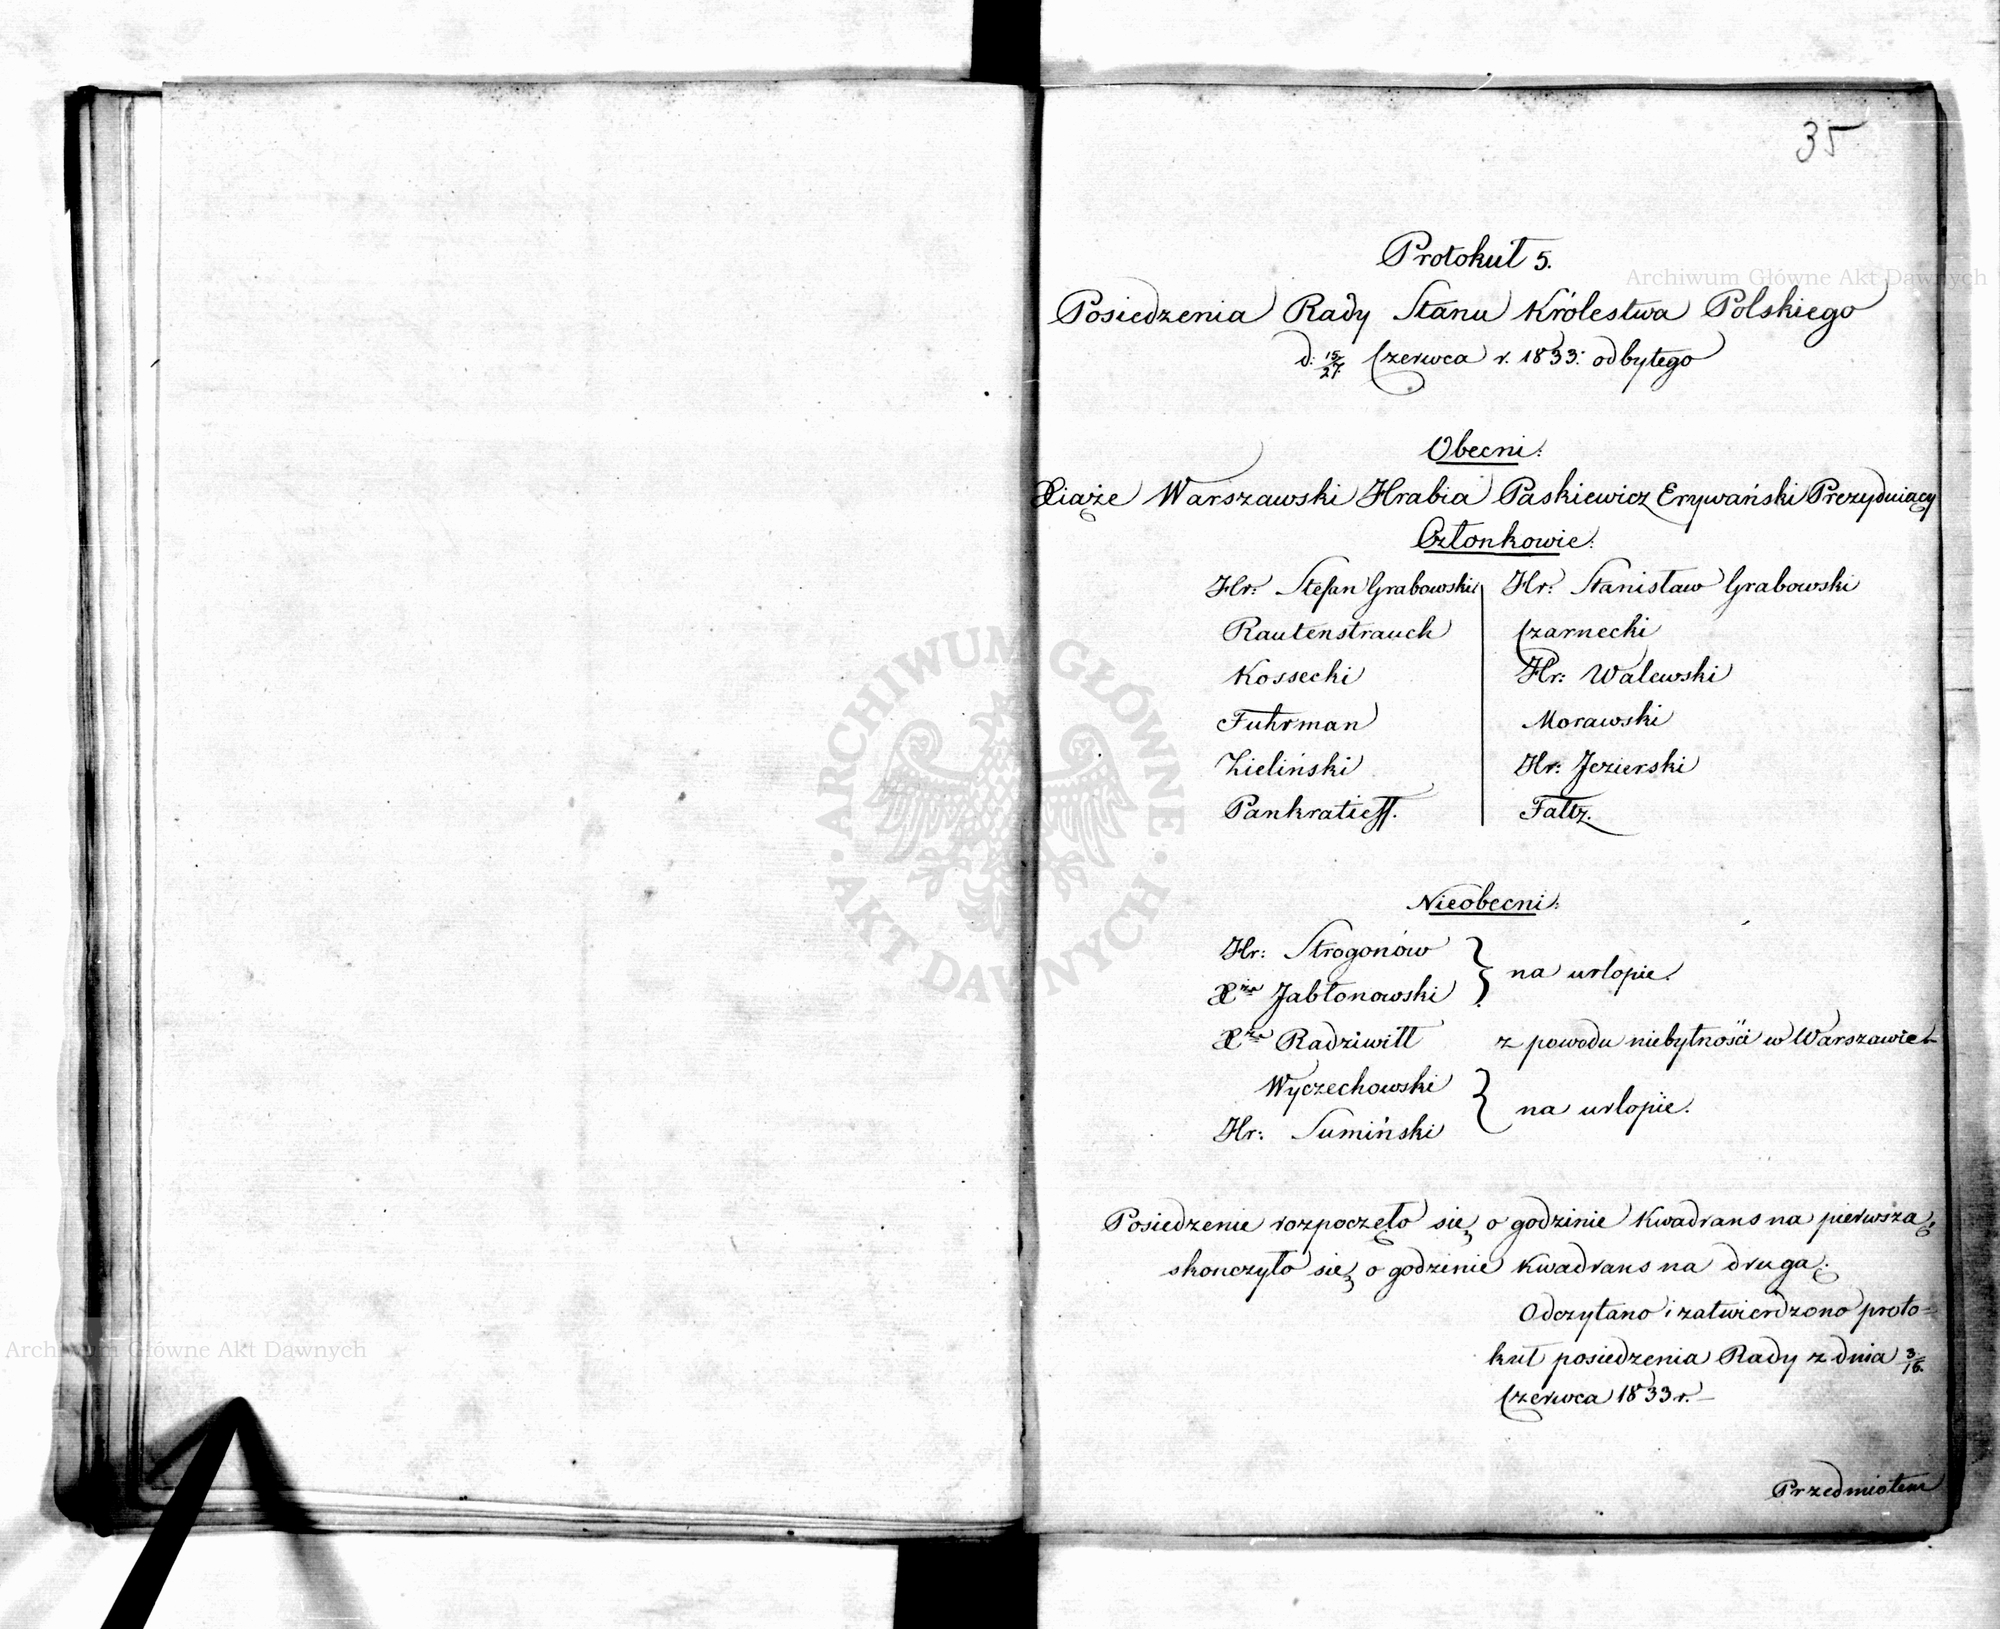 35
Protokuł 5.
Posiedzenia Rady Stanu Królestwa Polskiego
d: 15/27. Czerwca r. 1833: odbytego
Obecni:
Xiąże Warszawski Hrabia Paskiewicz Erywański Prezydujący
Członkowie:
Hr: Stefan Grabowski
Rautenstrauch
Kossecki
Fuhrman
Zieliński
Pankratieff.
Hr: Stanisław Grabowski
Czarnecki
Hr: Walewski
Morawski
Hr: Jezierski
Faltz.
Nieobecni:
Hr: Strogonów
Xże Jabłonowski
na urlopie.
Xże Radziwiłł z powodu niebytności w Warszawie
Wyczechowski
Hr: Sumiński
na urlopie.
Posiedzenie rozpoczęło się o godzinie kwadrans na pierwszą
skonczyło się o godzinie kwadrans na drugą.
Odczytano i zatwierdzono proto=
kuł posiedzenia Rady z dnia 3/15.
Czerwca 1833 r.
Przedmiotem
Archiwum Główne Akt Dawnych
Archiwum Główne Akt Dawnych
ARCHIWUM GŁÓWNE
· AKT DAWNYCH ·